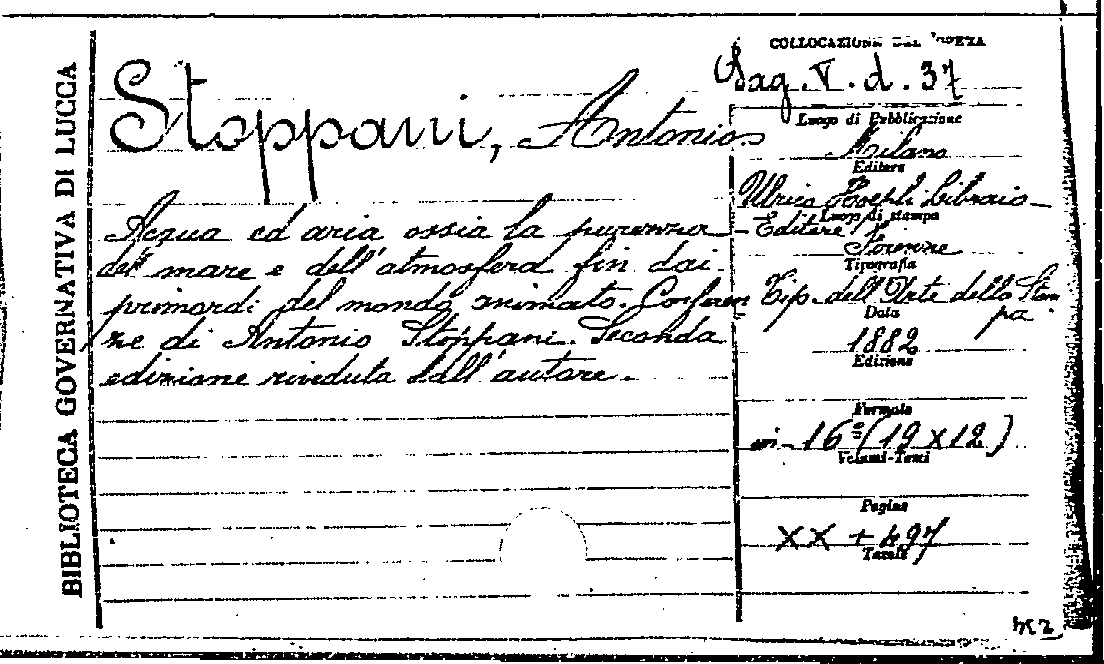 BIBLIOTECA GOVERNATIVA DI LUCCA
Stoppani, Antonio
Acqua ed aria ossia la purezza
del mare e dell'atmosfera fin dai
primordi del mondo animato. Conferen
ze di Antonio Stoppani. Seconda
edizione riveduta dall'autore.
COLLOCAZIONE DELL'OPERA
Bag. V. d. 37
Luogo di Pubblicazione
Milano
Editore
Ulrico Hoepli Libraio-
-Editore
Luogo di stampa
Firenze
Tipografia
Tip. dell'Arte della Stam
pa.
Data
1882
Edizione
Formato
in-16°(19x12)
Volumi-Tomi
Pagine
XX + 497
Tavole